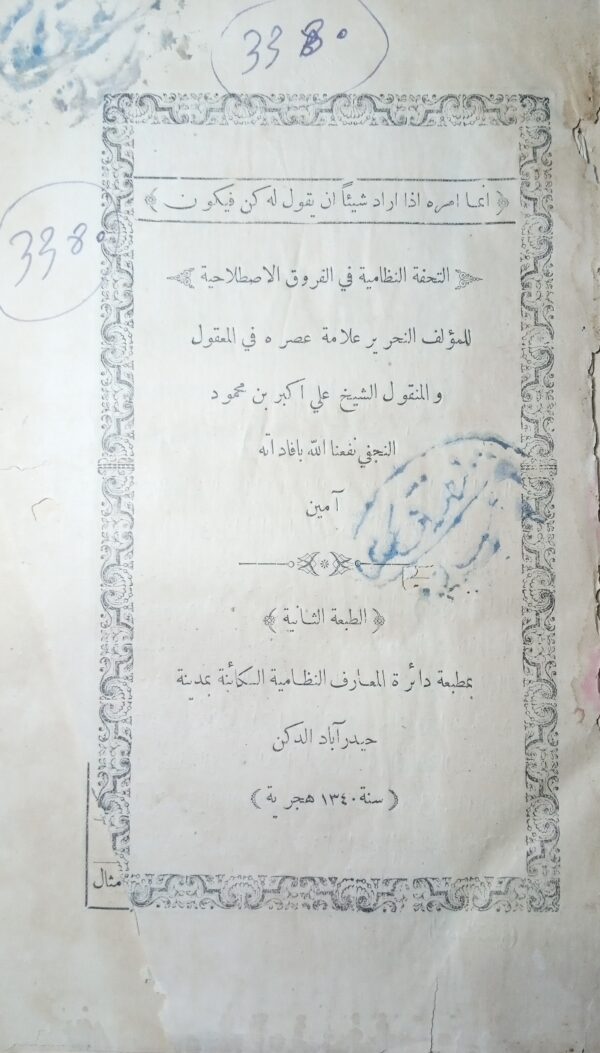 3380
3380
انما امره اذا اراد شيئاً ان يقول له كن فيكون
التحفة النظامية في الفروق الاصطلاحية
للمؤلف النحرير علامة عصره في المعقول
والمنقول الشيخ علي اكبر بن محمود
النجفي نفعنا الله بافاداته
آمين
﴿ الطبعة الثانية ﴾
بمطبعة دائرة المعارف النظامية الكائنة بمدينة
حيدرآباد الدكن
﴿ سنة ١٣٤٠ هجرية ﴾
مثال